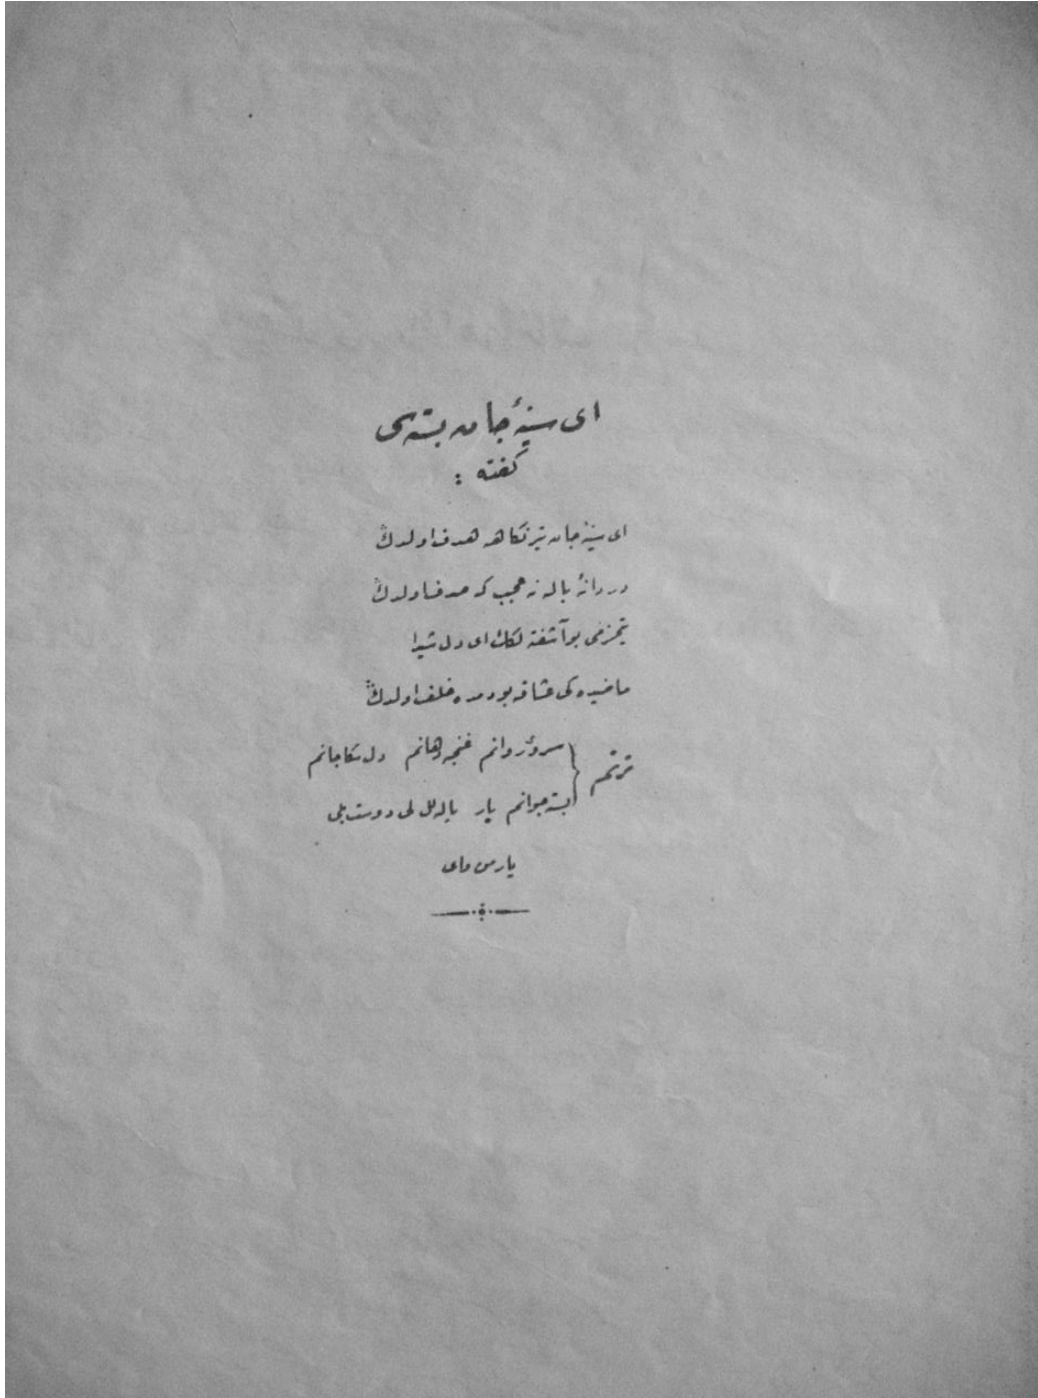 ای سینۀ جان بسته‌سی
گفته :
ای سینۀ جان تیر نگاهه هدف اولدڭ
دردانۀ یاله نه عجب که صدف اولدڭ
بو آشفته لكڭ ای دل شیدا
ماضیده کی عشاقه بو دمده خلف اولدڭ
ترنم { سرو روانم غنجه دهانم دل سکا جانم
ایشته جوانم یار یاله لل لی دوست بلی
یار من وای